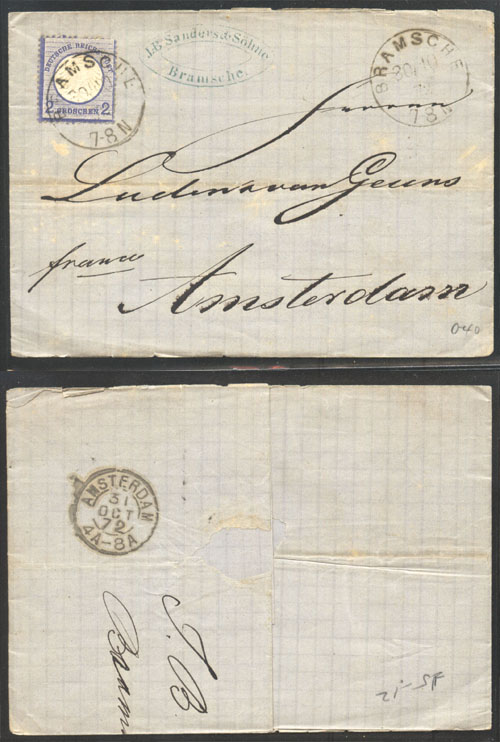 DEUTSCHE REICHS
2 GROSCHEN 2
BRAMSCHE
30/10
7-8 N
J.B. Sanders & Söhne
Bramsche.
BRAMSCHE
30/10
7 8 N
Herren
Ludens & van Geuns
franco
Amsterdam
040
AMSTERDAM
31
OCT
72
4A-8A
J. B
Brams